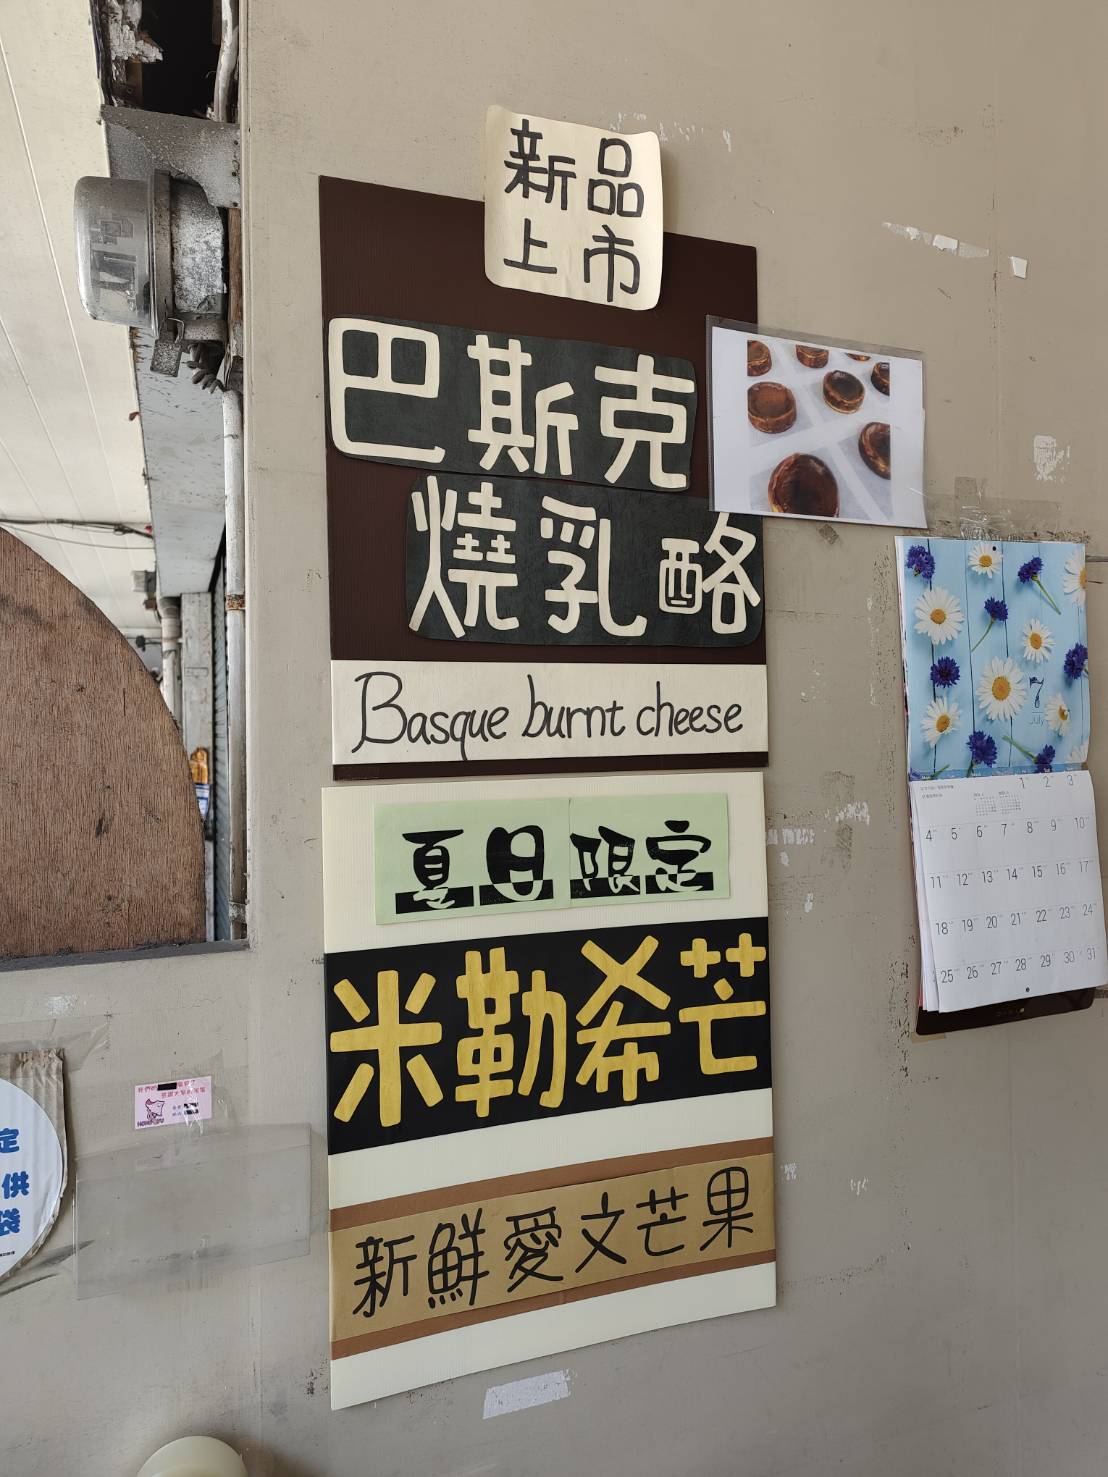 新品
上市
巴斯克
燒乳酪
Basque burnt cheese
夏日限定
米勒希芒
新鮮愛文芒果
7
July
1 2 3
4 5 6 7 8 9 10
11 12 13 14 15 16 17
18 19 20 21 22 23 24
25 26 27 28 29 30 31
定
供
袋